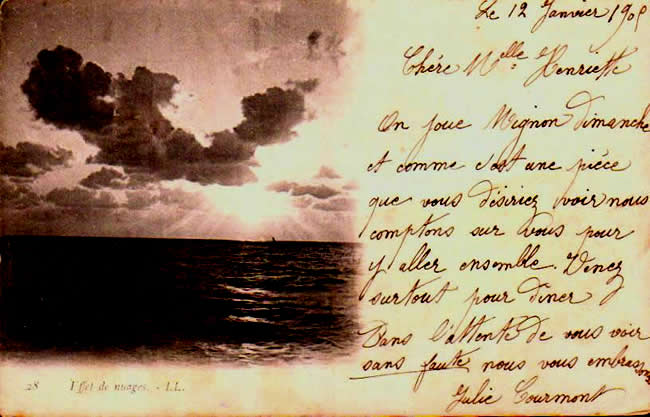 Le 12 Janvier 1905
Chère Melle Henriette
On joue Mignon dimanche
et comme c'est une pièce
que vous désiriez voir nous
comptons sur vous pour
y aller ensemble. Venez
surtout pour diner
Dans l'attente de vous voir
sans faute nous vous embrassons
Julie Courmont
28 Effet de nuages. - LL.